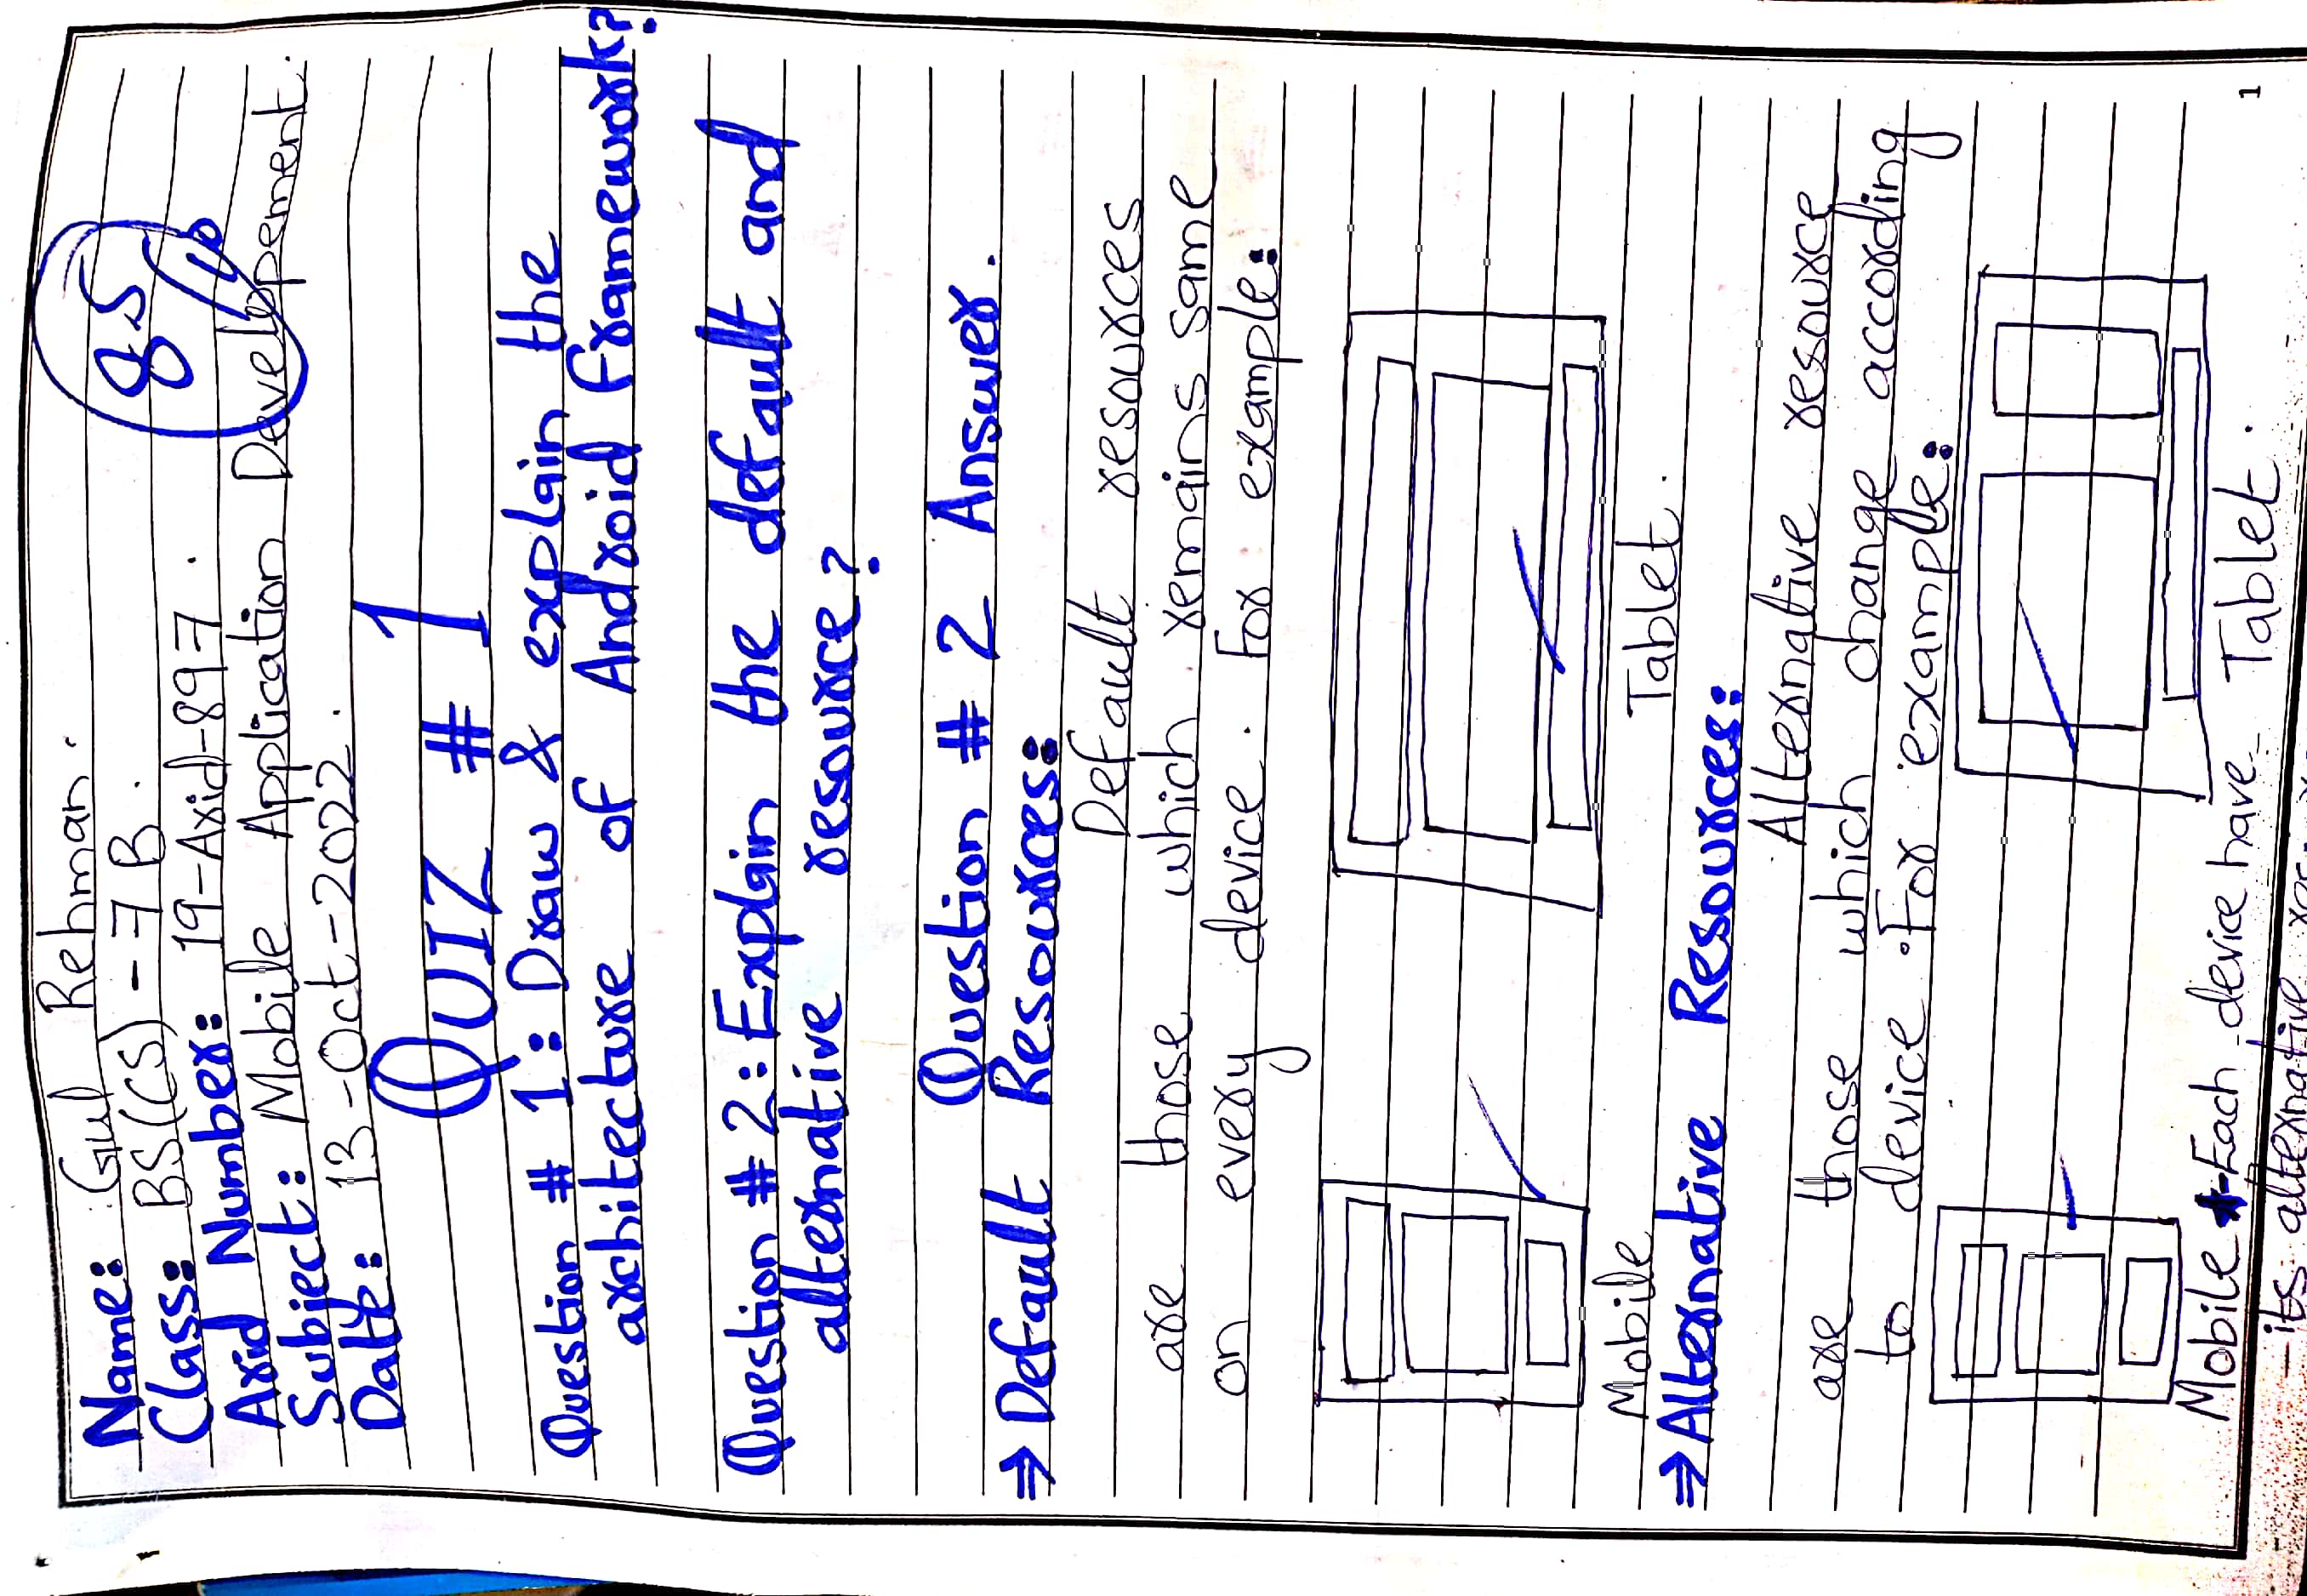 Name: Gul Rehman.
Class: BS(CS)-7B.
Arid Number: 19-Arid-897.
Subject: Mobile Application Developement.
Date: 13-Oct-2022.
8.5
10
QUIZ # 1
Question # 1: Draw & explain the
architecture of Android framework?
Question # 2: Explain the default and
alternative resource?
Question # 2 Answer.
⇒ Default Resources:
Default resources
are those which remains same
on every device. For example:
Mobile Tablet.
⇒ Alternative Resources:
Alternative resource
are those which change according
to device. For example:
Mobile * Each device have Tablet.
its alternative
1